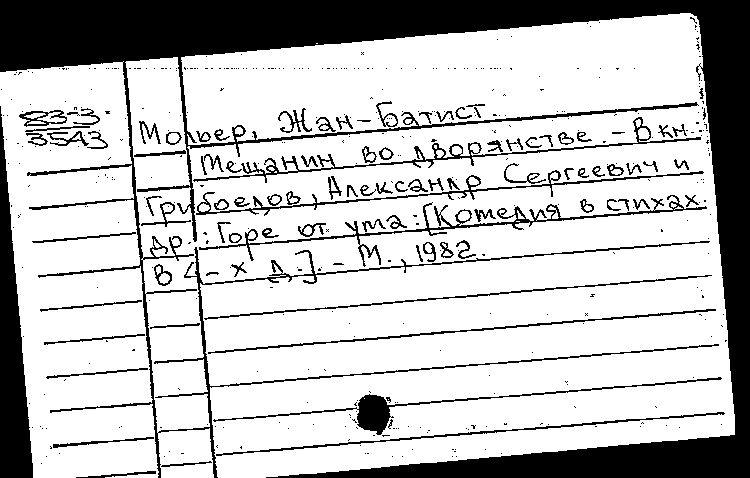 83-3
3543
Мольер, Жан-Батист.
Мещанин во дворянстве. - В кн.:
Грибоедов, Александр Сергеевич и
др.: Горе от ума: [Комедия в стихах
в 4-х д.]. - М., 1982.